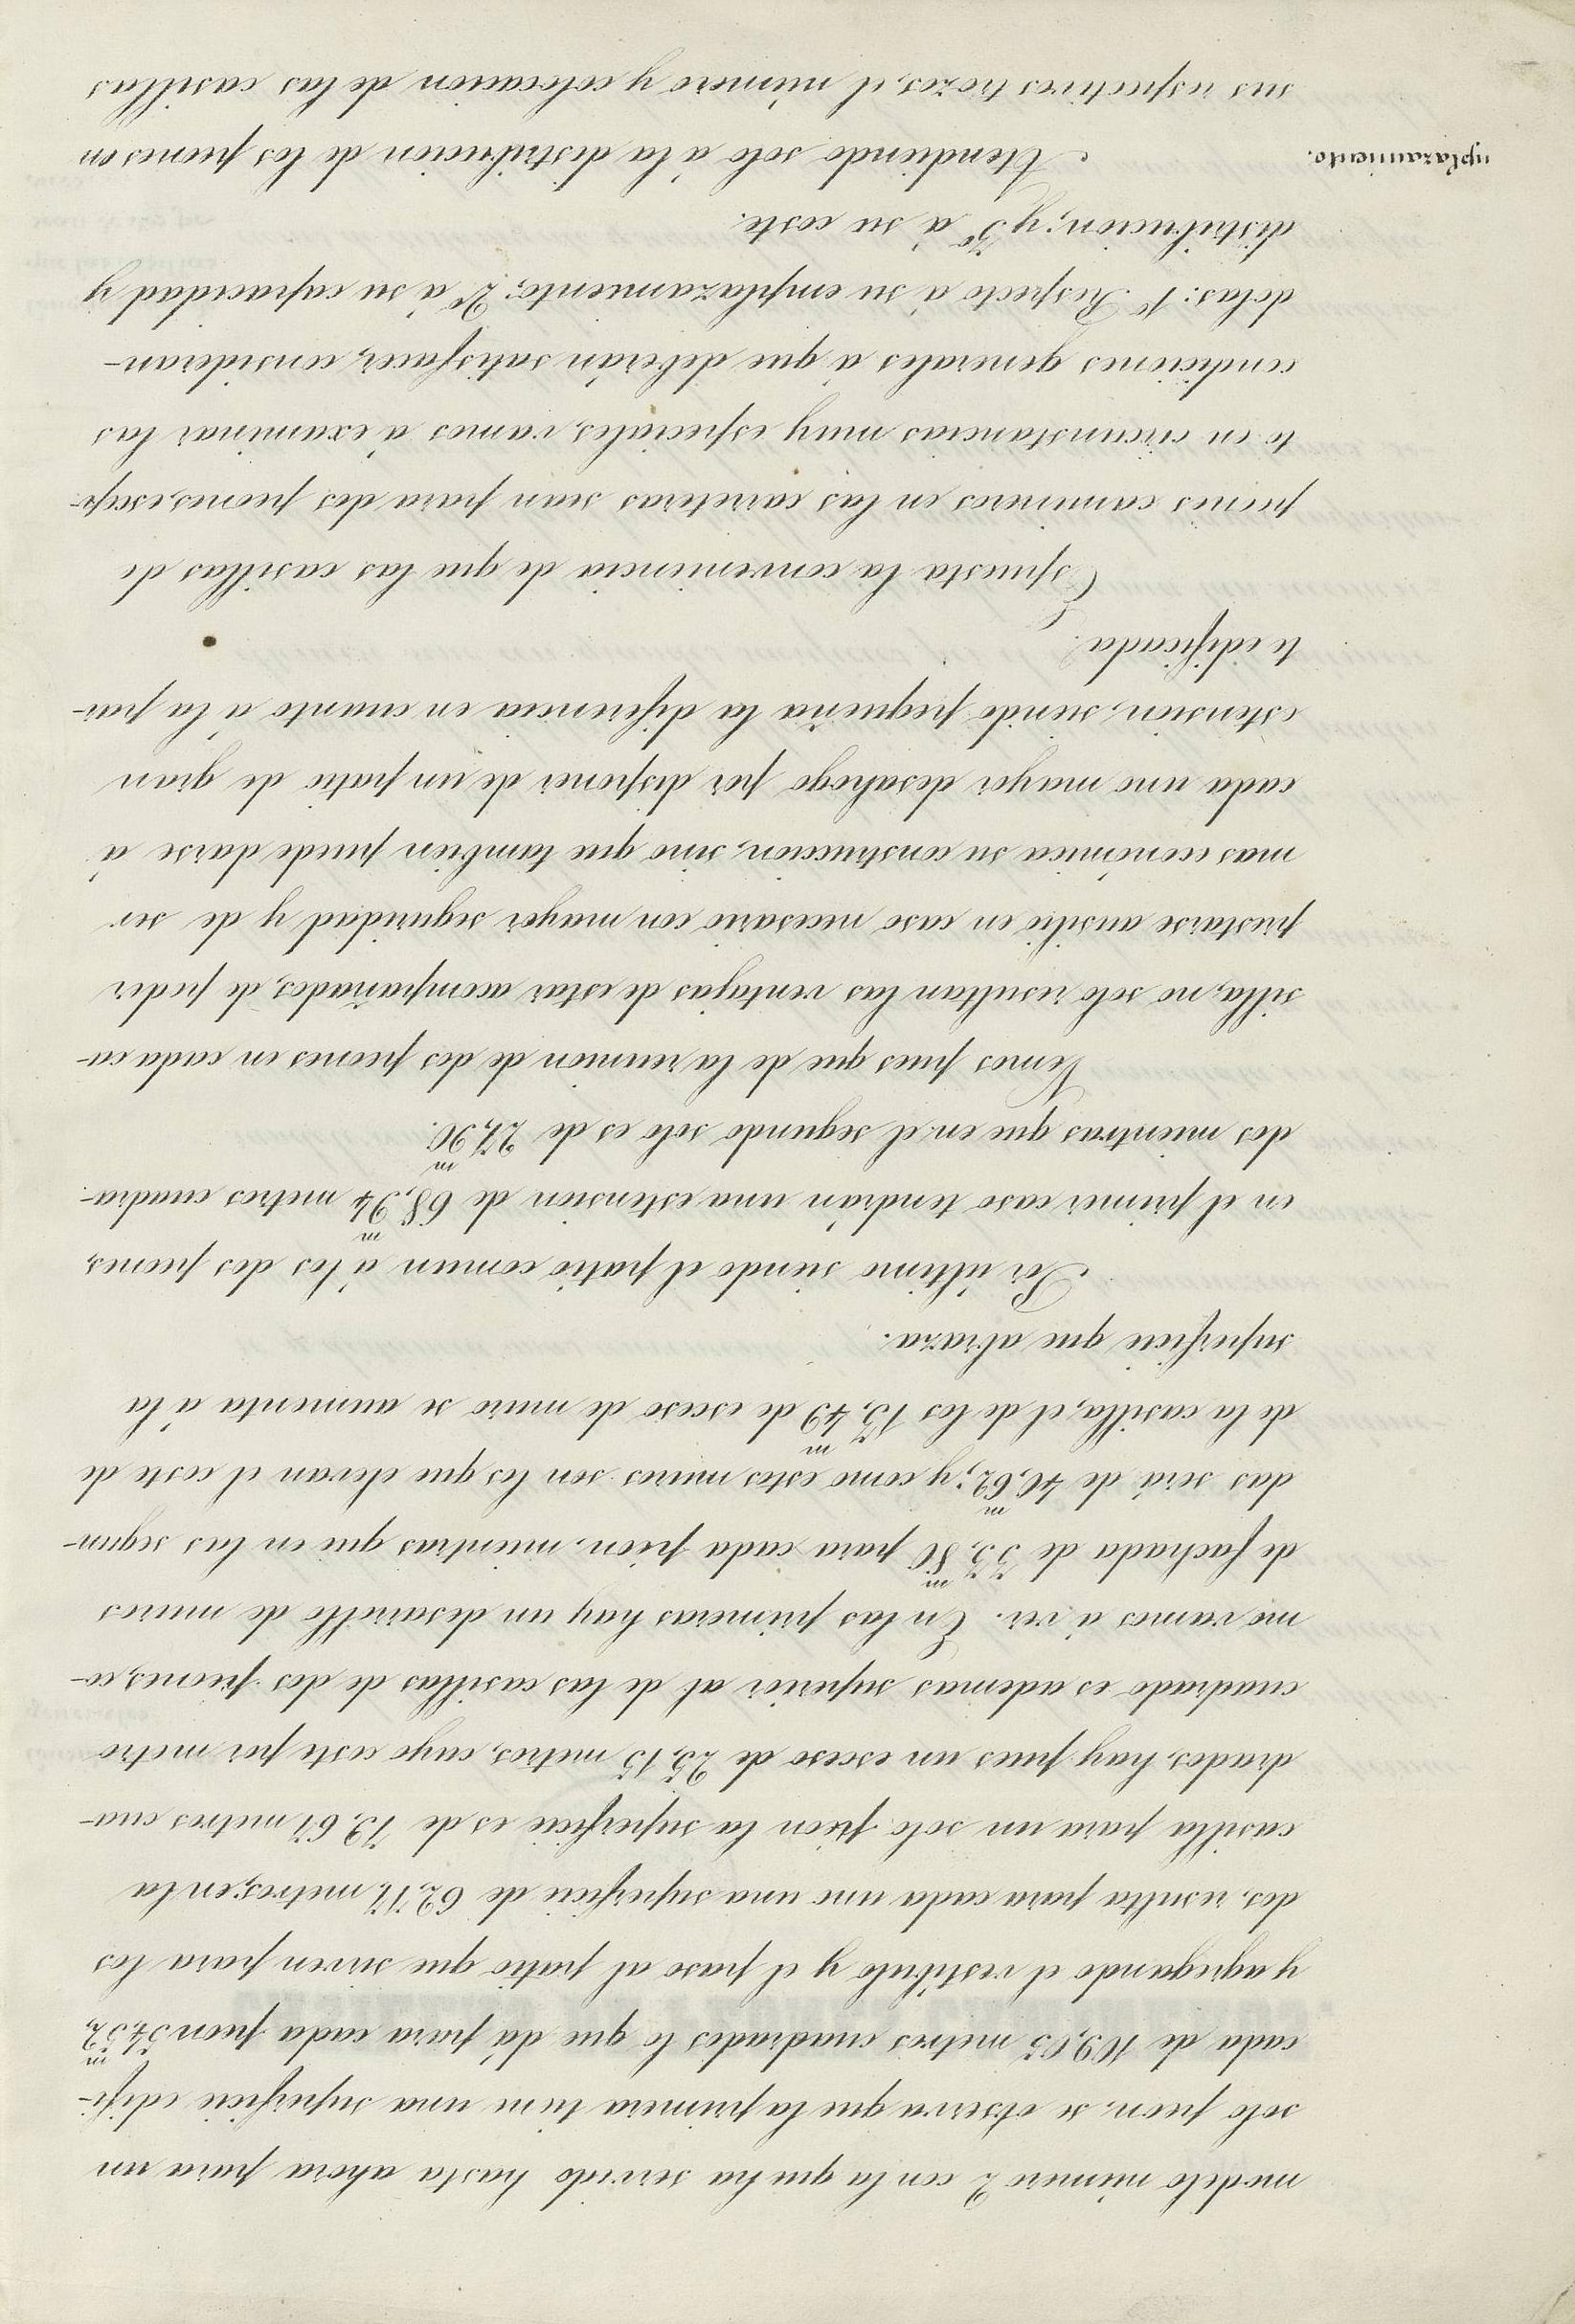 modelo número 2 con la que ha servido hasta ahora para un
solo peon, se observa que la primera tiene una superficie edifi-
cada de 109,05 metros cuadrados lo que dá para cada peon 54,52,m
y agregando el vestíbulo y el paso al patio que sirven para los
dos, resulta para cada uno una superficie de 62,77 metros; en la
casilla para un solo peon la superficie es de 79,67 metros cua-
drados, hay pues un esceso de 25,15 metros, cuyo coste por metro
cuadrado es ademas superior al de las casillas de dos peones, co-
mo vamos á ver. En las primeras hay un desarrollo de muros
de fachada de 33,m80 para cada peon, mientras que en las segun-
das será de 40,m62; y como estos muros son los que elevan el coste de
de la casilla, el de los 13,m49 de esceso de muro se aumenta á la
superficie que abraza.
Por último siendo el patio comun á los dos peones,
en el primer caso tendrán una estension de 68,m94 metros cuadra-
dos mientras que en el segundo solo es de 27,m90.
Vemos pues que de la reunion de dos peones en cada ca-
silla, no solo resultan las ventajas de estar acompañados, de poder
prestarse ausilio en caso necesario con mayor seguridad y de ser
mas económica su construccion, sino que tambien puede darse á
cada uno mayor desahogo por disponer de un patio de gran
estension, siendo pequeña la diferencia en cuanto á la par-
te edificada.
Espuesta la conveniencia de que las casillas de
peones camineros en las carreteras sean para dos peones, escep-
to en circunstancias muy especiales, vamos á examinar las
condiciones generales á que deberán satisfacer, consideran-
dolas: 1º Respecto á su emplazamiento; 2º á su capacidad y
distribucion; y 3º á su coste.
mplazamiento. Atendiendo solo á la distribucion de los peones en
sus respectivos trozos, el número y colocacion de las casillas